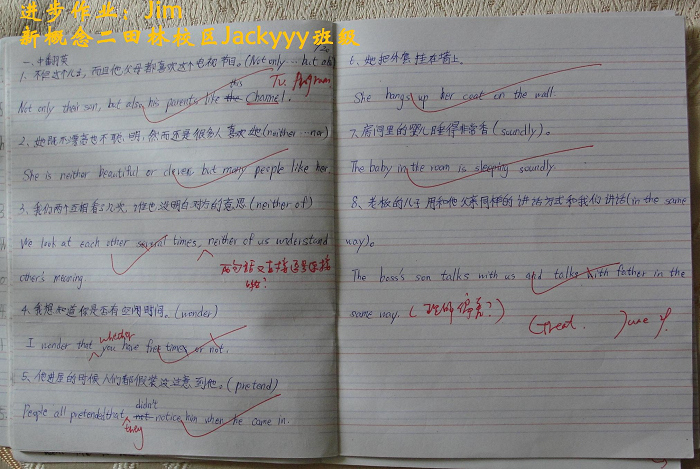 进步作业：Jim
新概念二田林校区Jackyyy班级
一、中翻英
1. 不但这个儿子，而且他父母都喜欢这个电视节目。(Not only... but also
this
TV. program
Not only their son, but also his parents like the channel.
2、她既不漂亮也不聪明，然而还是很多人喜欢她(neither...nor)
She is neither beautiful or clever, but many people like her.
3、我们两个互相看了几次，谁也没明白对方的意思(neither of)
We look at each other several times, neither of us understand
other's meaning.
两句话又直接逗号连接
啦？
4、我想知道你是否有空闲时间。(wonder)
whether
I wonder that you have free times or not.
5、他进屋的时候人们都假装没注意到他。(pretend)
didn't
People all pretended that not notice him when he came in.
they
6、她把外套挂在墙上。
She hangs up her coat on the wall.
7、房间里的婴儿睡得非常香(soundly)。
The baby in the room is sleeping soundly.
8、老板的儿子用和他父亲同样的讲话方式和我们讲话(in the same
way)。
The boss's son talks with us and talks with father in the
same way. (理解偏差？)
Great. June 9.